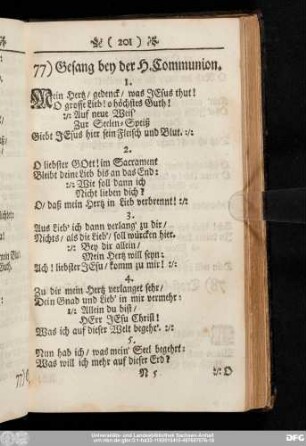 ( 201 )
77) Gesang bey der H. Communion.
1.
Mein Hertz / gedenck / was JEsus thut!
O grosse Lieb! o höchstes Guth!
:/: Auf neue Weis'
Zur Seelen-Speiß
Giebt JEsus hier sein Fleisch und Blut. :/:
2.
O liebster GOtt! im Sacrament
Bleibt deine Lieb bis an das End:
:/: Wie soll dann ich
Nicht lieben dich?
O / daß mein Hertz in Lieb verbrennt! :/:
3.
Aus Lieb' ich dann verlang' zu dir /
Nichts / als die Lieb' / soll würcken hier.
:/: Bey dir allein /
Mein Hertz will seyn:
Ach! liebster JEsu / komm zu mir! :/:
4.
Zu dir mein Hertz verlanget sehr /
Dein Gnad und Lieb' in mir vermehr:
:/: Allein du bist /
HErr JEsu Christ!
Was ich auf dieser Welt begehr'. :/:
5.
Nun hab ich / was mein' Seel begehrt:
Was will ich mehr auf dieser Erd?
N 5 :/: O
Universitäts- und Landesbibliothek Sachsen-Anhalt